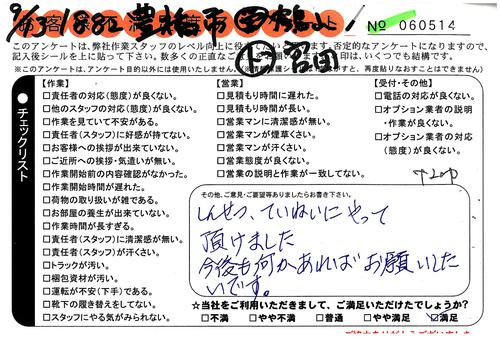 9/13 1882 豊橋市
№ 060514
このアンケートは、弊社作業スタッフのレベル向上に役
否定的なアンケートになりますので、
記入後シールを上に貼って下さい。数多くの正直な
印は、いくつでも結構です。
※このアンケートは、アンケート目的以外には使用いたしません。
再度貼りなおすことはできません
チェックリスト
【作業】
□責任者の対応(態度)が良くない。
□他のスタッフの対応(態度)が良くない。
□作業を見ていて不安がある。
□責任者(スタッフ)に好感が持てない。
□お客様への挨拶が出来ていない。
□ご近所への挨拶・気遣いが無い。
□作業開始前の内容確認がなかった。
□作業開始時間が遅れた。
□荷物の取り扱いが雑である。
□お部屋の養生が出来ていない。
□作業時間が長すぎる。
□責任者(スタッフ)に清潔感が無い。
□責任者(スタッフ)が汗くさい。
□トラックが汚い。
□梱包資材が汚い。
□運転が不安(下手)である。
□靴下の履き替えをしてない。
□スタッフにやる気がみられない。
【営業】
□見積もり時間に遅れた。
□見積もり時間が長い。
□営業マンに清潔感が無い。
□営業マンが煙草くさい。
□営業マンが汗くさい。
□営業態度が良くない。
□営業の説明と作業が一致してない。
【受付・その他】
□電話の対応が良くない。
□オプション業者の説明
・作業が良くない。
□オプション業者の対応
(態度)が良くない。
その他、ご意見・ご要望等ありましたらお書き下さい。
しんせつ、ていねいにやって
頂けました
今後も何かあればお願いした
いです。
☆当社をご利用いただきまして、ご満足いただけたでしょうか?
□不満 □やや不満 □普通 □やや満足 ☑満足